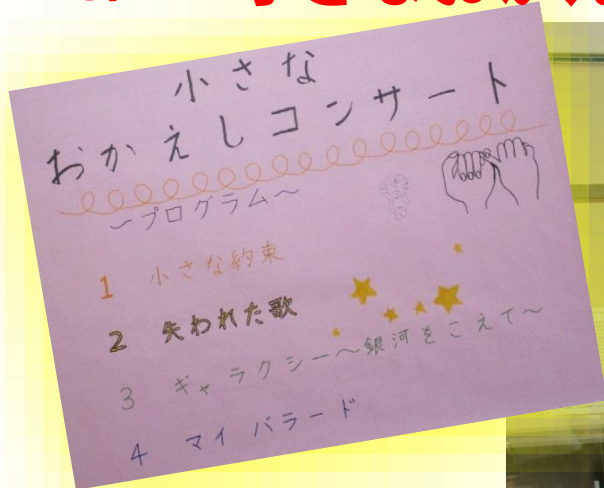 小さな
おかえしコンサート
～プログラム～
1 小さな約束
2 失われた歌
3 ギャラクシー～銀河をこえて～
4 マイバラード